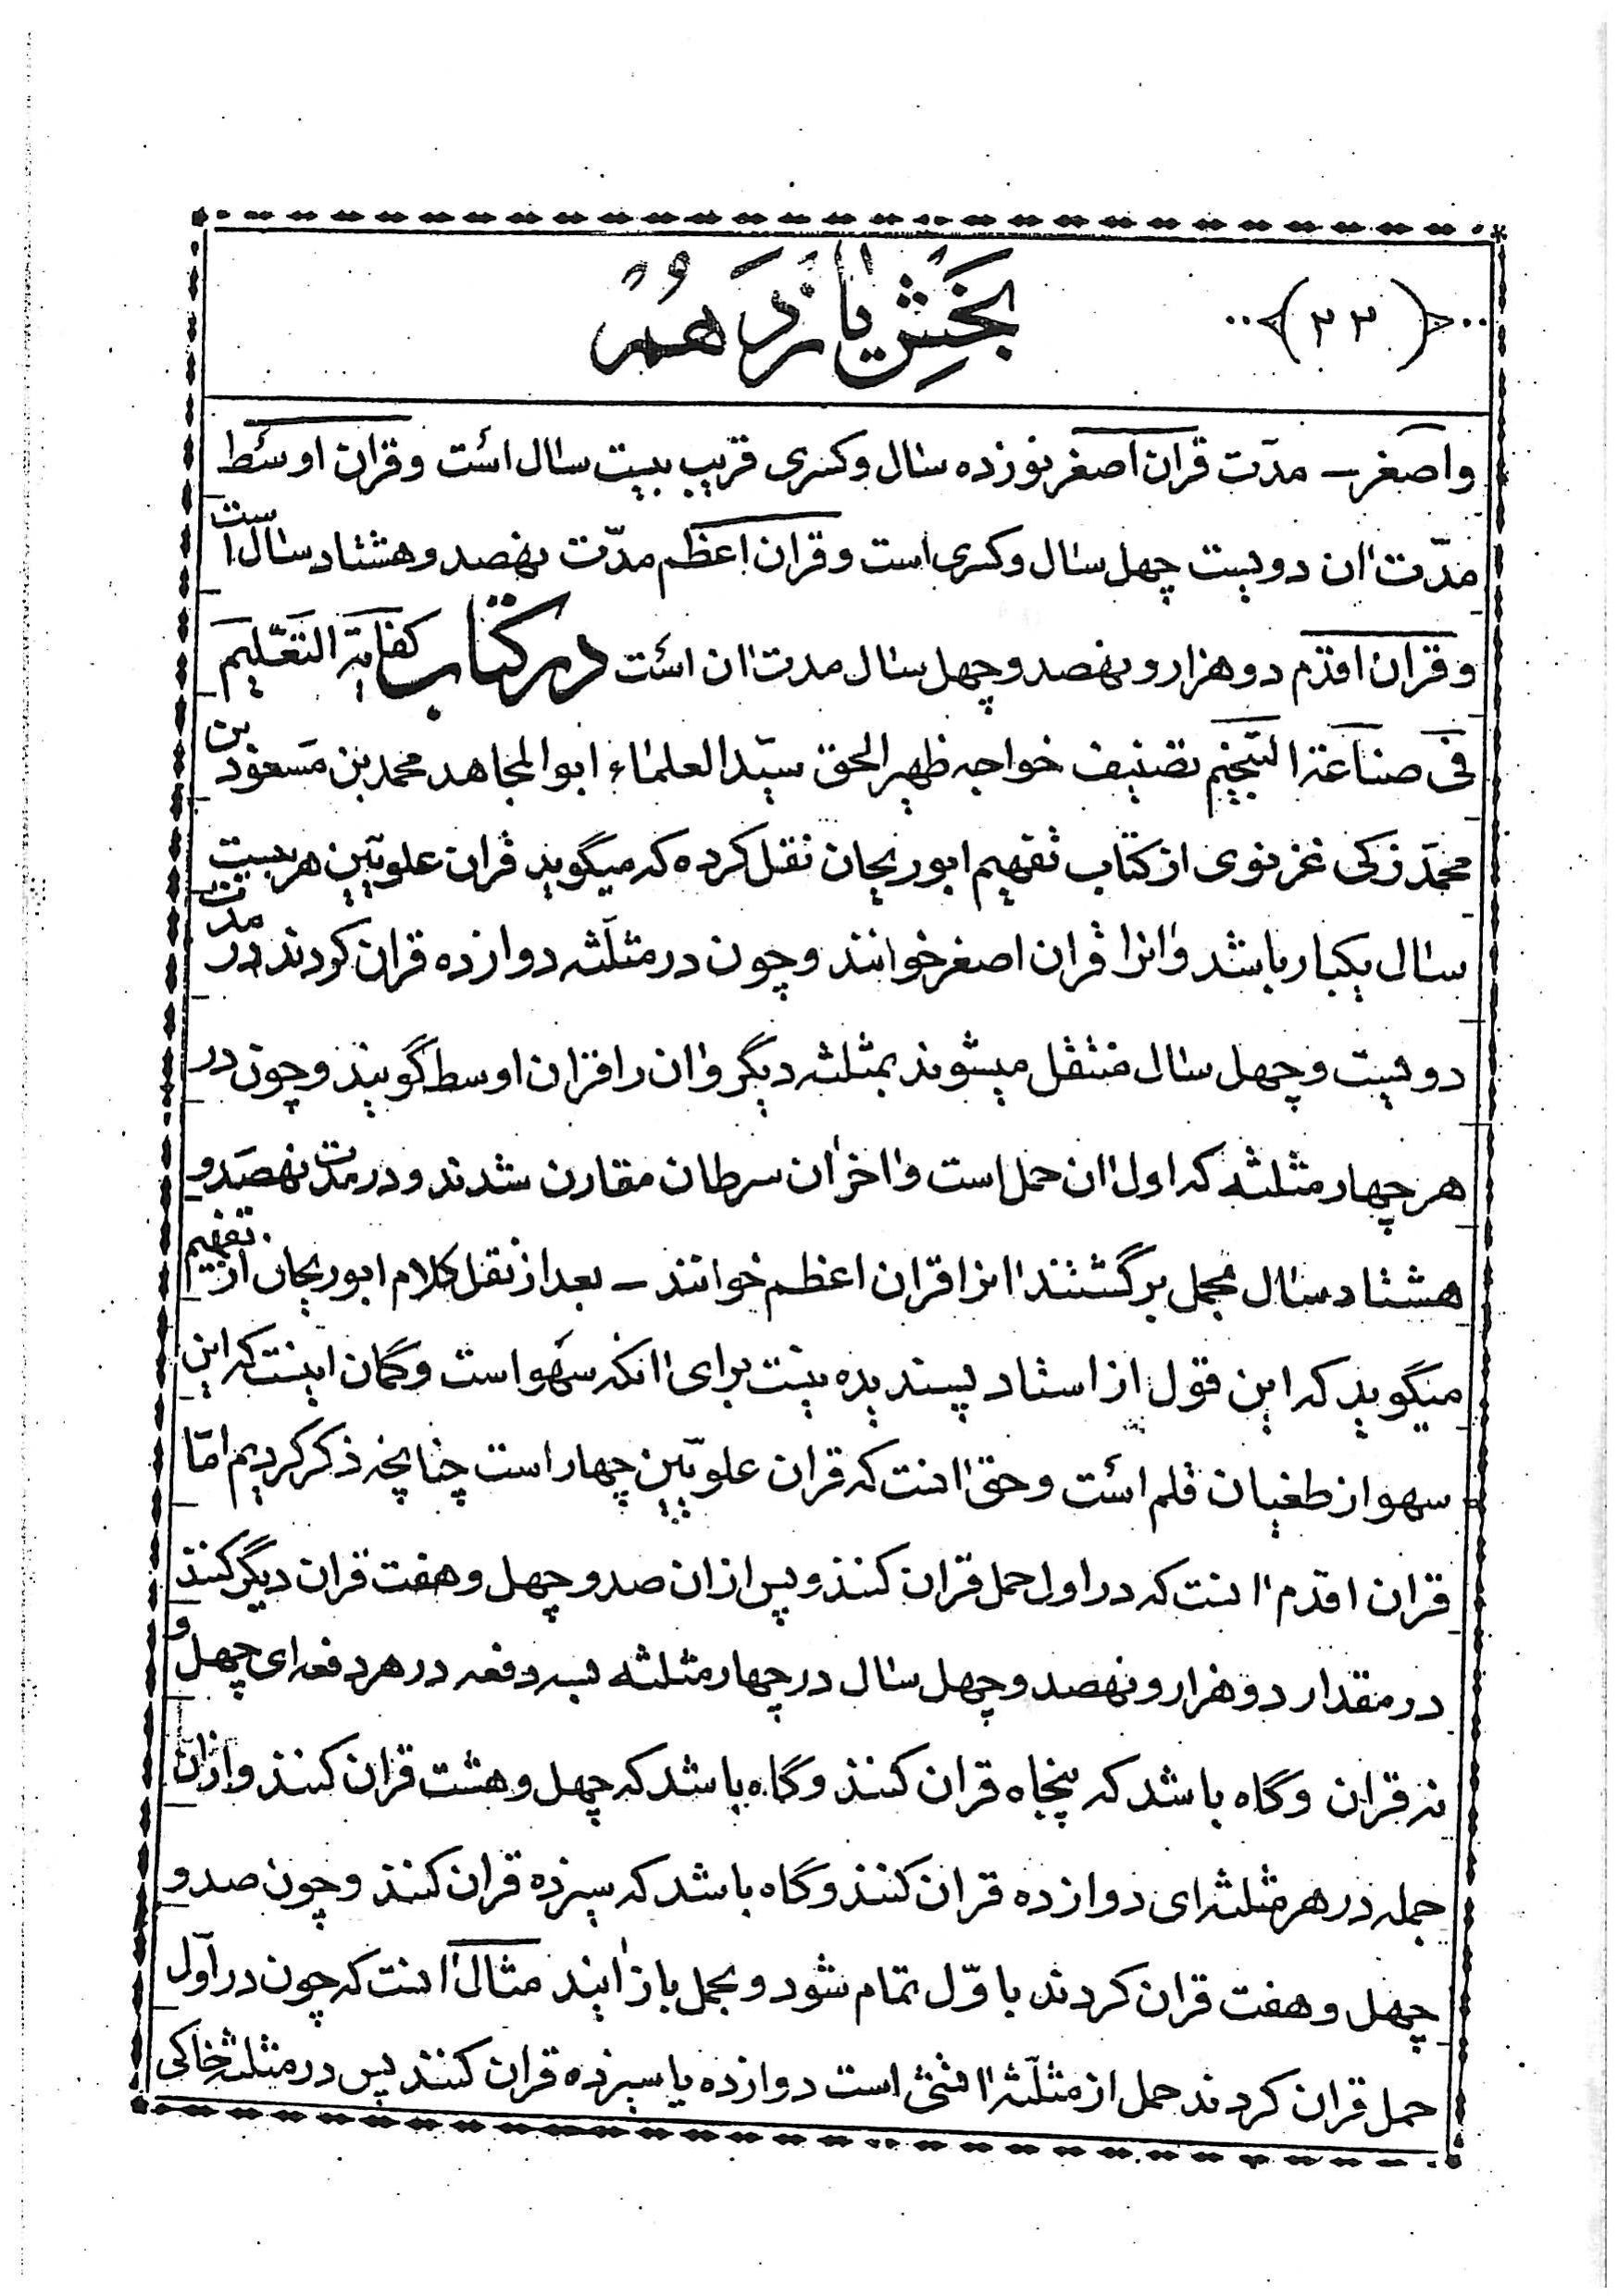 (۲۳)
بخش یازدهم
واصغر – مدّت قران اصغر نوزده سال و کسری قریب بیست سال است و قران اوسط
مدّت آن دویست چهل سال و کسری است و قران اعظم مدّت نهصد و هشتاد سال است
و قران اقدم دو هزار و نهصد و چهل سال مدت آن است در کتاب کفایة التعلیم
فی صناعة التنجیم تصنیف خواجه ظهیر الحق سیّد العلماء ابوالمجاهد محمد بن مسعود بن
محمّد زکی غزنوی از کتاب تفهیم ابوریحان نقل کرده که میگوید قران علویّین هر بیست
سال یکبار باشد و آنرا قران اصغر خوانند و چون در مثلّثه دوازده قران کردند در مدّت
دویست و چهل سال منتقل میشوند بمثلثه دیگر و آن را قران اوسط گویند و چون در
هر چهار مثلثه که اول آن حمل است و آخر آن سرطان مقارن شدند و در مدت نهصد و
هشتاد سال بحمل برگشتند آنرا قران اعظم خوانند – بعد از نقل کلام ابوریحان از تفهیم
میگوید که این قول از استاد پسندیده نیست برای آنکه سهو است و گمان اینست که این
سهو از طغیان قلم است و حق آنست که قران علویّین چهار است چنانچه ذکر کردیم امّا
قران اقدم آنست که در اول حمل قران کنند و پس از آن صد و چهل و هفت قران دیگر کنند
در مقدار دو هزار و نهصد و چهل سال در چهار مثلثه بسه دفعه در هر دفعه ای چهل و
نه قران و گاه باشد که پنجاه قران کنند و گاه باشد که چهل و هشت قران کنند و از آن
جمله در هر مثلثه ای دوازده قران کنند و گاه باشد که سیزده قران کنند و چون صد و
چهل و هفت قران کردند باوّل تمام شود و بحمل باز آیند مثالی آنست که چون در اوّل
حمل قران کردند حمل از مثلّثه آتشی است دوازده یا سیزده قران کنند پس در مثلثه خاکی